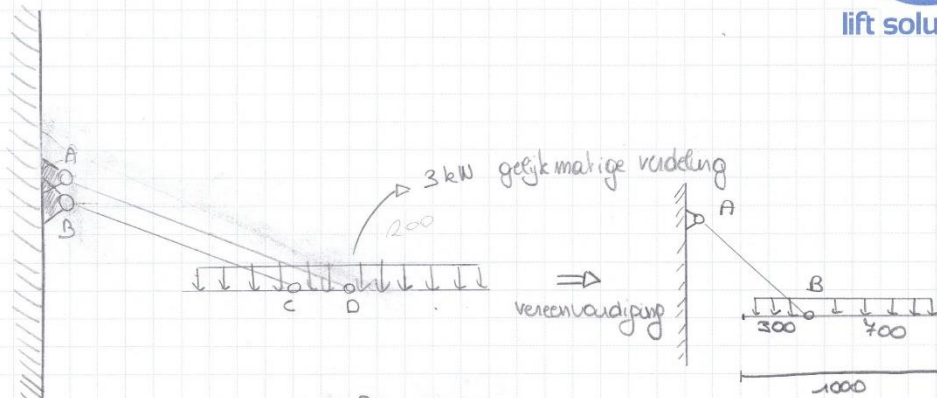 lift solu
A
B
C
D
3 kN gelijkmatige verdeling
200
⇒
vereenvoudiging
A
B
300
700
1000